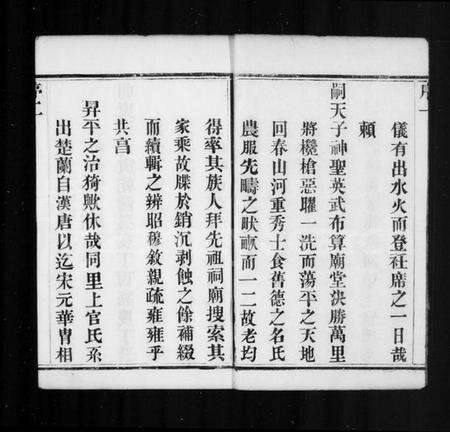 序一
儀有出水火而登衽席之一日哉
賴
嗣天子神聖英武布算廟堂決勝萬里
將欃槍惡曜一洗而蕩平之天地
回春山河重秀士食舊德之名氏
農服先疇之畎畝而一二故老均
得率其族人拜先祖祠廟搜索其
家乘故牒於銷沉剥蝕之餘補綴
而續輯之辨昭穆敘親疏雍雍乎
共亯
昇平之治猗歟休哉同里上官氏系
出楚蘭自漢唐以迄宋元華胄相
序二